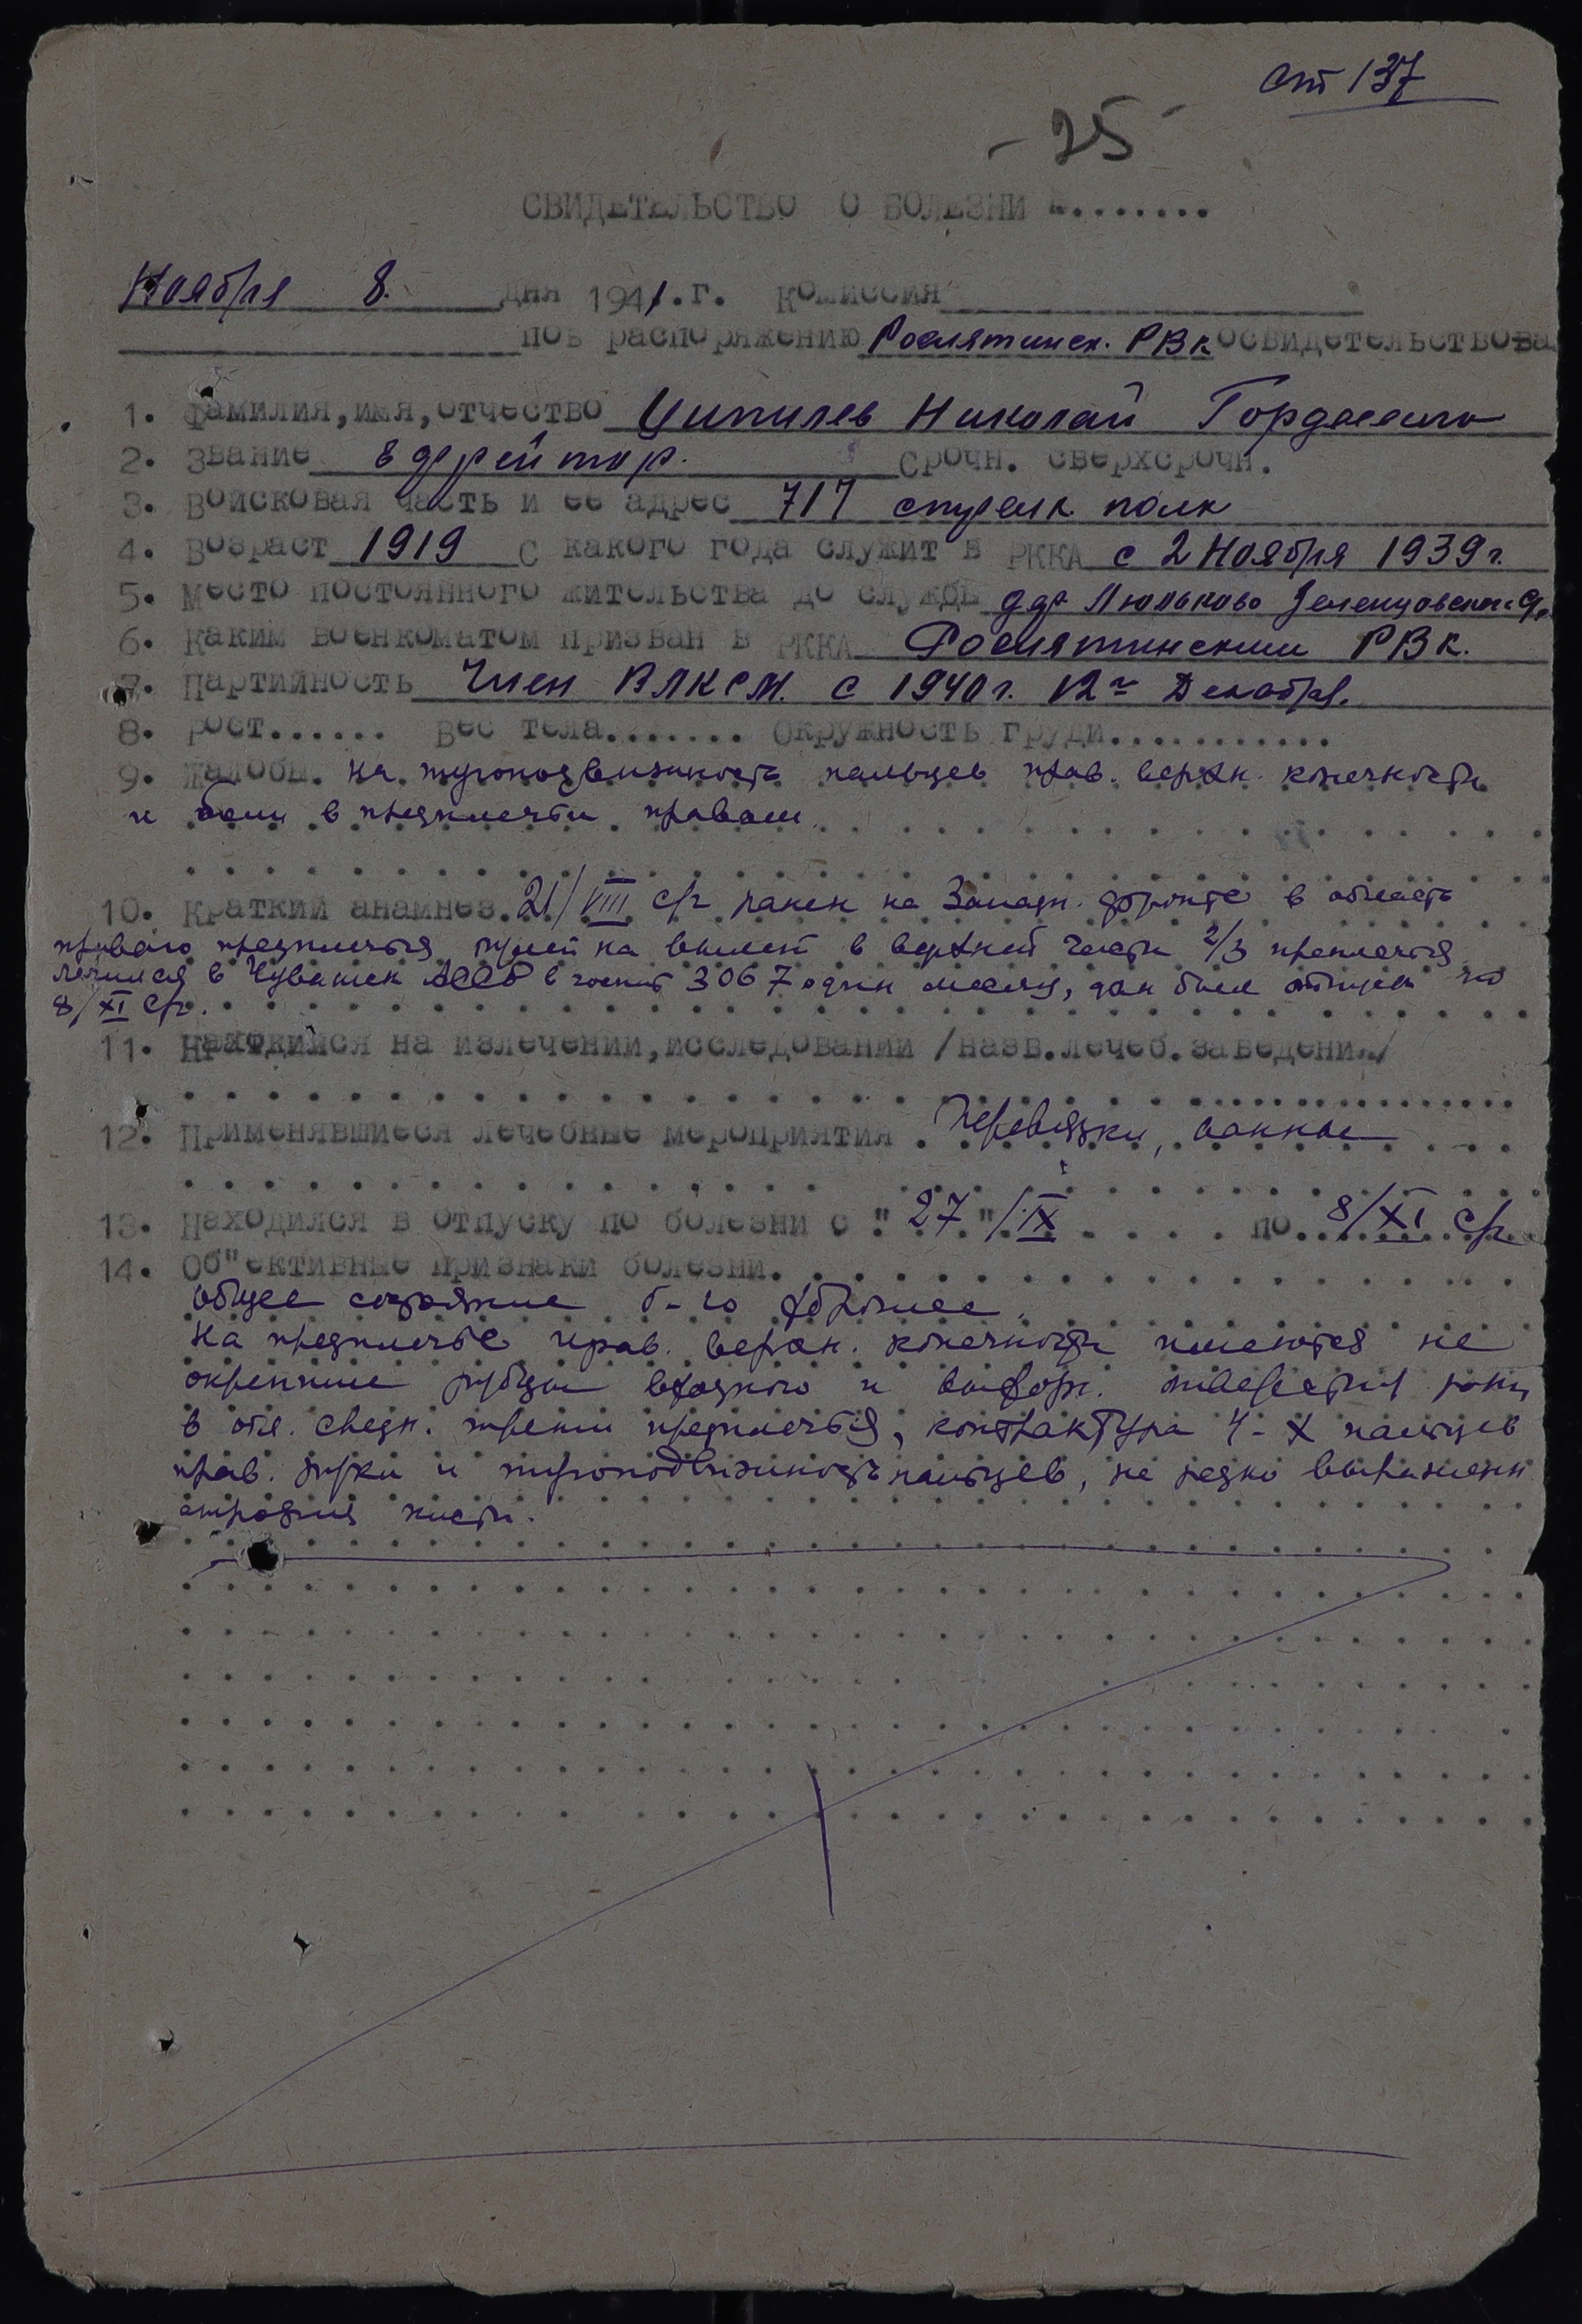 ст 137
- 25 -
СВИДЕТЕЛЬСТВО О БОЛЕЗНИ №........
Ноября 8. дня 1941.г. Комиссия
по распоряжению Рослятинск. РВК освидетельствова
1. Фамилия,имя,отчество Ципилев Николай
2. Звание Ефрейтор. Срочн. сверхсрочн.
3. Войсковая часть и ее адрес 717 стрелк. полк
4. Возраст 1919 С какого года служит в РККА с 2 Ноября 1939 г.
5. Место постоянного жительства до службы дер Люльково Зеленцовского с/с
6. Каким военкоматом призван в РККА Рослятинским РВК.
7. Партийность Член ВЛКСМ. с 1940 г. 12го Декабря.
8. Рост...... Вес тела....... Окружность груди...........
9. Жалобы. на тугоподвижность пальцев прав. верхн. конечности
и боли в предплечьи правом.
10. Краткий анамнез. 21/VIII с/г ранен на Западн. фронте в область
правого предплечья пулей на вылет в верхней части 2/3 преплечья
лечился в Чувашск АССР в госпит 3067 один месяц, дан был отпуск по
8/XI с/г.
11. Находился на излечении,исследовании /назв.лечеб.заведени./
12. Применявшиеся лечебные мероприятия. Перевязки, ванны
13. Находился в отпуску по болезни с "27"/IX по 8/XI с/г
14. Об"ективные признаки болезни.
общее состояние б-го хорошее.
На предплечье прав. верхн. конечности имеются не
окрепшие рубцы входного и выходн. отверстия раны
в обл. средн. трети предплечья, контрактура 4-х пальцев
прав. руки и тугоподвижность пальцев, не резко выражен
атрофия кисти.